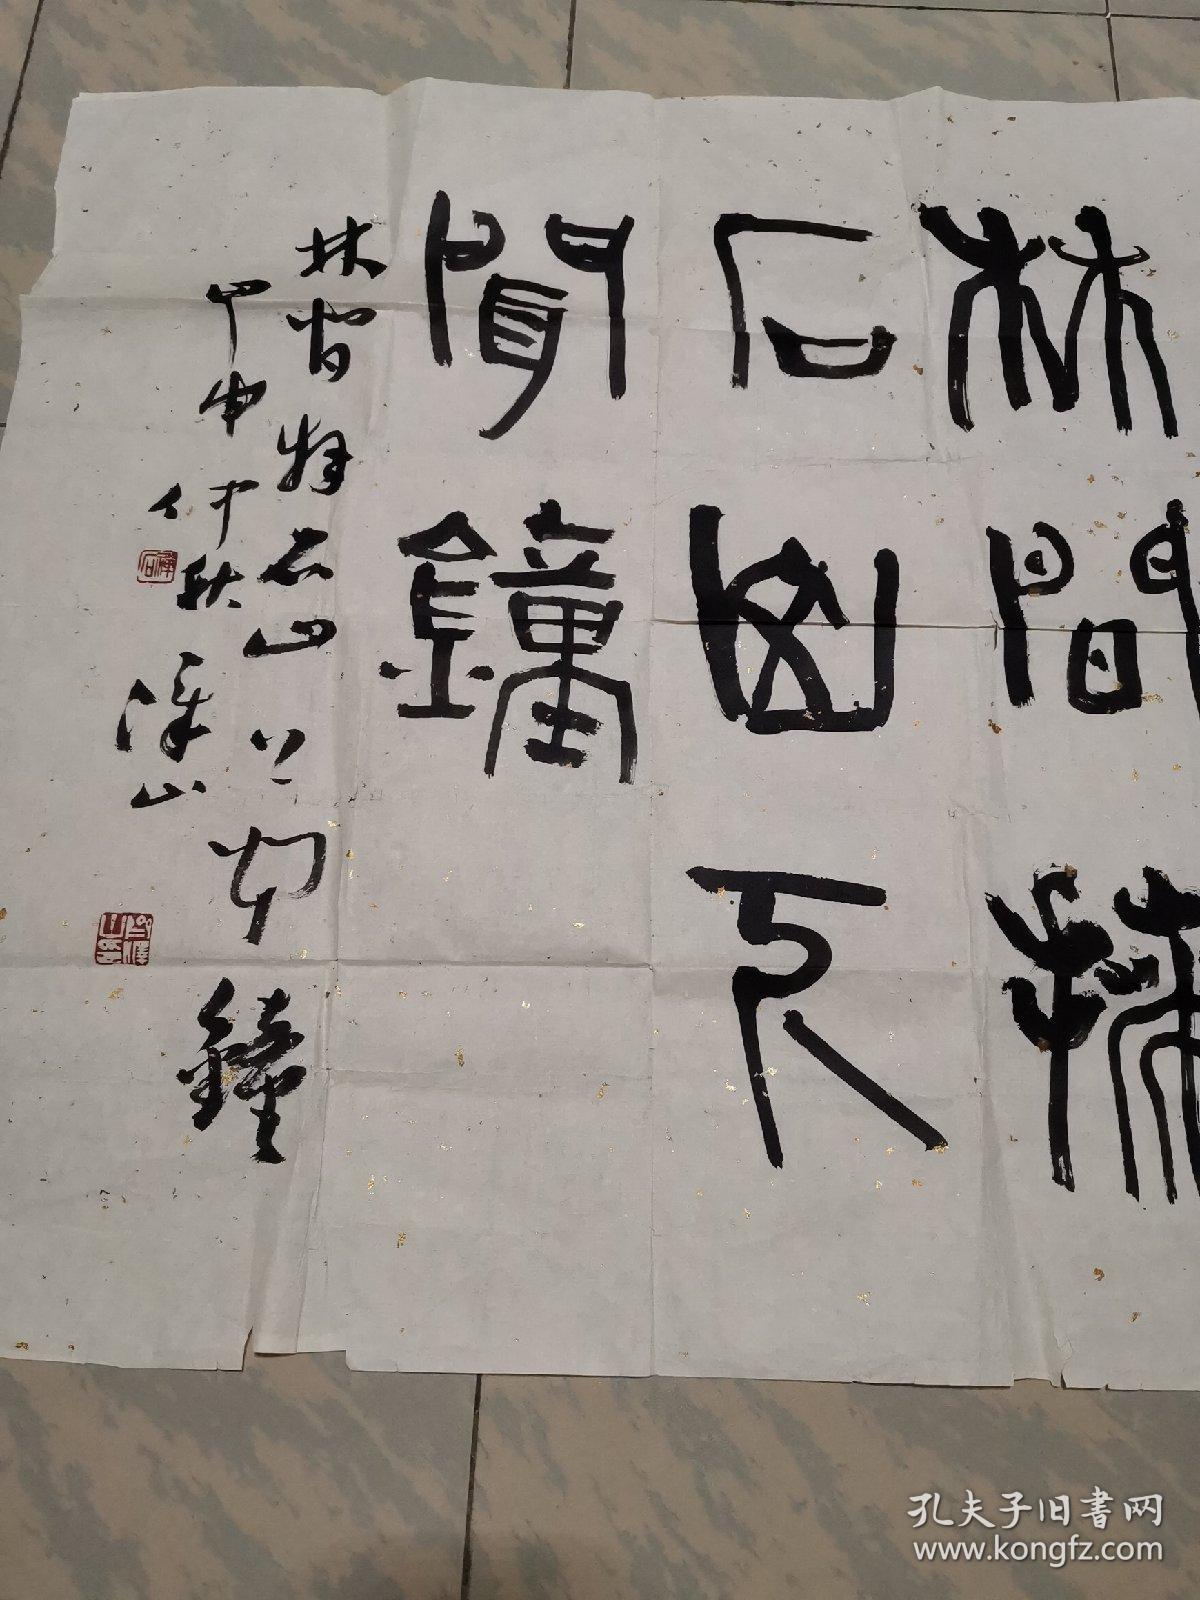 林間
石山下
聞鐘
林間石山下聞鐘
甲申仲秋山
孔夫子旧书网
www.kongfz.com